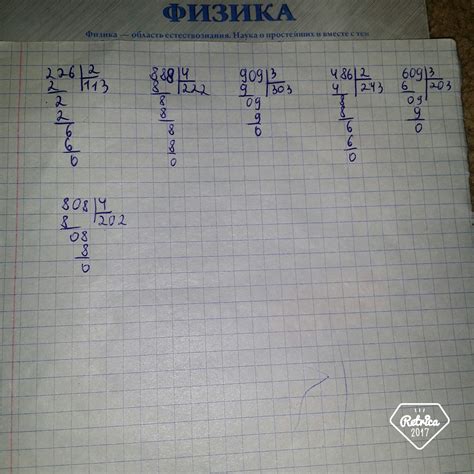 ФИЗИКА
Физика — область естествознания. Наука о простейших и вместе с тем
226 2 888 4 909 3 486 2 609 3
2 113 8 222 9 303 4 243 6 203
2 8 09 8 09
2 8 9 8 9
6 8 0 6 0
6 8 6
0 0 0
808 4
8 202
08
8
0
Retrica
2017